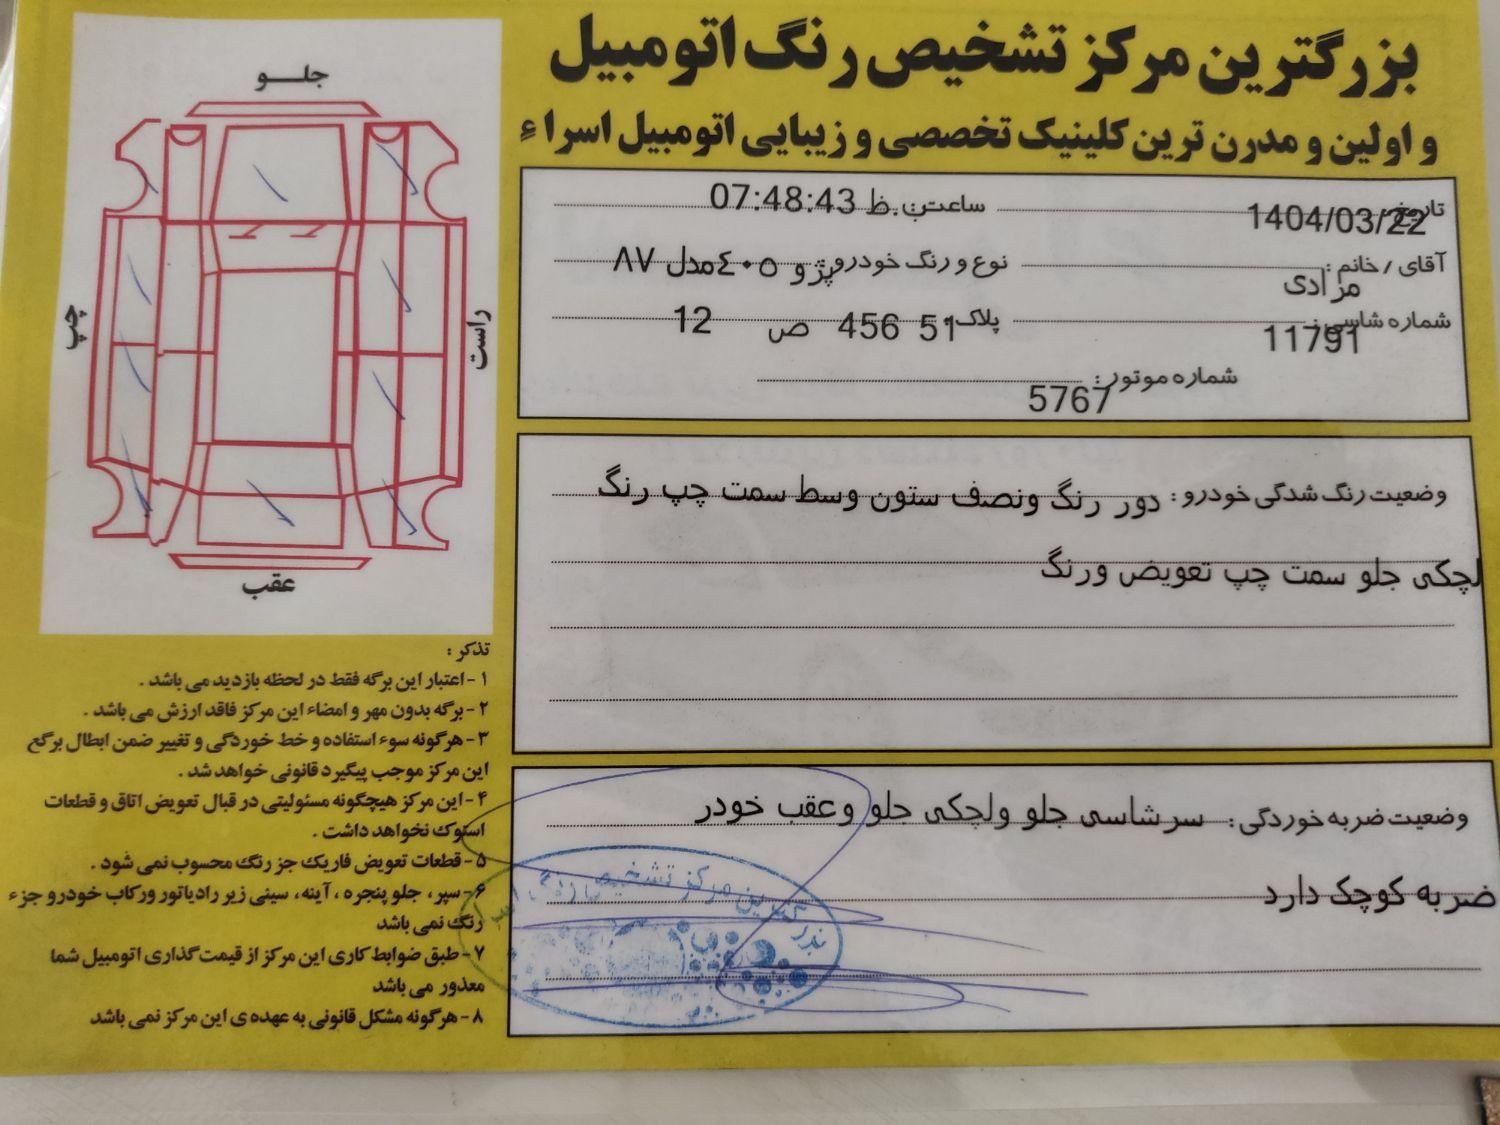 بزرگترین مرکز تشخیص رنگ اتومبیل
و اولین و مدرن ترین کلینیک تخصصی و زیبایی اتومبیل اسراء
تاریخ: 1404/03/22 ساعت: ب.ظ 07:48:43
آقای / خانم: مرادی نوع و رنگ خودرو: پژو ۴۰۵ مدل ۸۷
شماره شاسی: 11791 پلاک: 51 456 ص 12
شماره موتور: 5767
وضعیت رنگ شدگی خودرو: دور رنگ ونصف ستون وسط سمت چپ رنگ
لچکی جلو سمت چپ تعویض ورنگ
وضعیت ضربه خوردگی: سرشاسی جلو ولچکی جلو وعقب خودر
ضربه کوچک دارد
بزرگترین مرکز تشخیص رنگ
جلـــو
چپ
راست
عقب
تذکر:
۱- اعتبار این برگه فقط در لحظه بازدید می باشد.
۲- برگه بدون مهر و امضاء این مرکز فاقد ارزش می باشد.
۳- هرگونه سوء استفاده و خط خوردگی و تغییر ضمن ابطال برگع
این مرکز موجب پیگیرد قانونی خواهد شد.
۴- این مرکز هیچگونه مسئولیتی در قبال تعویض اتاق و قطعات
استوک نخواهد داشت.
۵- قطعات تعویض فابریک جز رنگ محسوب نمی شود.
۶- سپر، جلو پنجره، آینه، سینی زیر رادیاتور ورکاب خودرو جزء
رنگ نمی باشد
۷- طبق ضوابط کاری این مرکز از قیمت گذاری اتومبیل شما
معذور می باشد
۸- هرگونه مشکل قانونی به عهده ی این مرکز نمی باشد